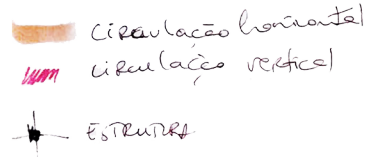 circulação horizontal
circulação vertical
ESTRUTURA